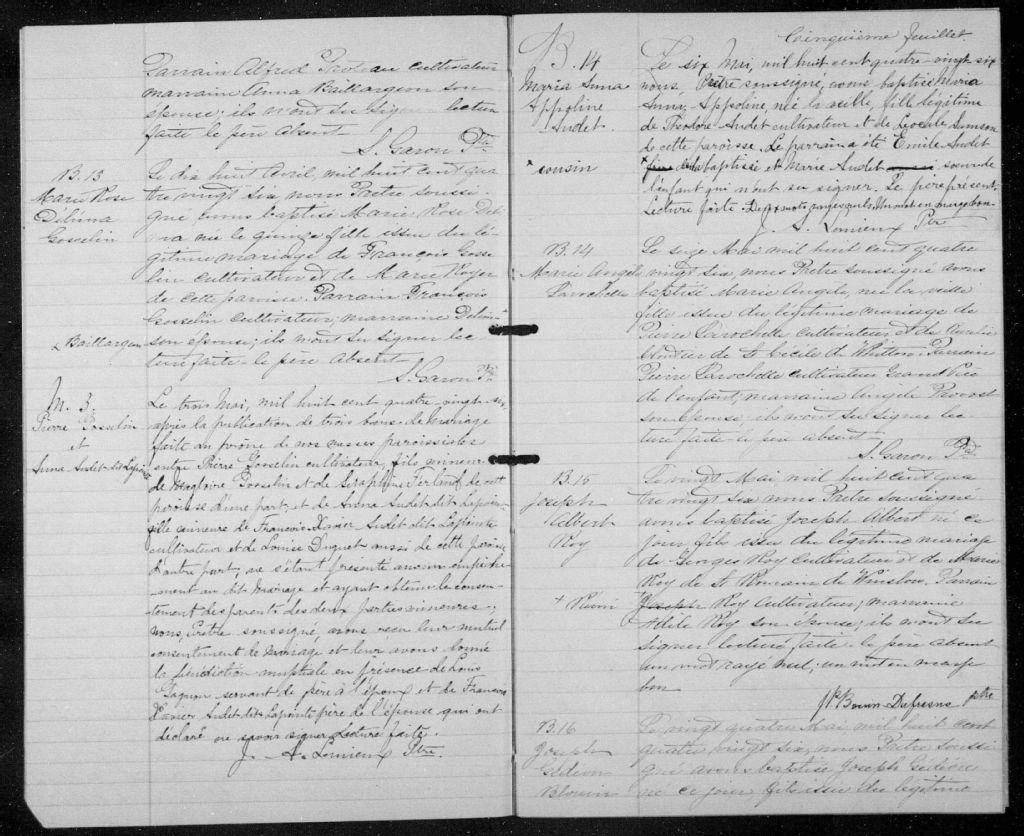 Parrain Alfred Proteau cultivateur
marraine Anna Baillargeon son
épouse; ils n'ont su signer lecture
faite le père absent
S. Garon Ptre
B. 13
Marie Rose
Delima
Gosselin
Le dix huit Avril, mil huit cent qua
tre vingt six nous Pretre soussi-
gné avons baptisé Marie Rose Deli
ma née le quinze fille issue du lé
gitime mariage de François Gosse
lin cultivateur et de Marie Royer
de cette paroisse Parrain François
Gosselin cultivateur; marraine Delima
x Baillargeon
son épouse; ils n'ont su signer lec-
ture faite le père absent
S. Garon Ptre
M. 3.
Pierre Gosselin
et
Anna Audet-dit-Lapointe
Le trois Mai, mil huit cent quatre-vingt-six
après la publication de trois bans de mariage
faite au prône de nos messes paroissiales
entre Pierre Gosselin cultivateur, fils mineur
de Magloire Gosselin et de Séraphine Ferland de cette
paroisse d'une part, et de Anna Audet-dit-Lapointe
fille mineure de François-Xavier Audet-dit-Lapointe
cultivateur et de Louise Duquet aussi de cette paroisse
d'autre part; ne s'étant présenté aucun empêche-
ment au dit mariage et ayant obtenu le consen-
tement des parents des deux parties mineures;
nous, Prêtre soussigné, avons reçu leur mutuel
consentement de mariage et leur avons donné
la bénédiction nuptiale en présence de Louis
Gagnon servant de père à l'époux et de François
Xavier Audet-dit-Lapointe père de l'épouse qui ont
déclaré ne savoir signer. Lecture faite.
J. A. Lemieux Ptre.
Cinquième feuillet.
B. 14
Maria Anna
Appoline
Audet
Le six Mai, mil huit cent quatre-vingt six
nous, Prêtre soussigné, avons baptisé Maria
Anna, Appoline, née la veille, fille légitime
de Théodore Audet cultivateur et de Léocadie Samson
de cette paroisse. Le parrain a été Emile Audet
x cousin
de la baptisée et Marie Audet soeur de
l'enfant qui n'ont su signer. Le père présent.
Lecture faite. Deux mots rayés nuls. Un mot en marge bon.
J. A. Lemieux Ptr
B. 14
Marie Angele
Larochelle
Le seize Mai mil huit cent quatre
vingt six, nous Pretre soussigné avons
baptisé Marie Angele, née la veille
fille issue du légitime mariage de
Pierre Larochelle cultivateur et de
de St Cécile de Whitton. Parrain
Pierre Larochelle cultivateur Grand Père
de l'enfant; marraine Angèle Provost
son épouse ils n'ont su signer lec
ture faite le père absent
S. Garon Ptre
B. 15
Joseph
Albert
Roy
Le vingt Mai, mil huit cent qua
tre vingt six nous Pretre soussigné
avons baptisé Joseph Albert né ce
jour fils issu du légitime mariage
de Georges Roy cultivateur et de Marie
Roy de St. Romain de Winslow. Parrain
+ Rémi
+ Joseph Roy cultivateur; marraine
Adèle Roy son épouse; ils n'ont su
signer lecture faite le père absent
un mot rayé nul, un mot en marge
bon
Jph Bouin-Dufresne ptre
B. 16
Joseph
Gédéon
Blouin
Le vingt quatre Mai, mil huit cent
quatre vingt six, nous Pretre soussi
gné avons baptisé Joseph Gédéon
né ce jour, fils issu du légitime